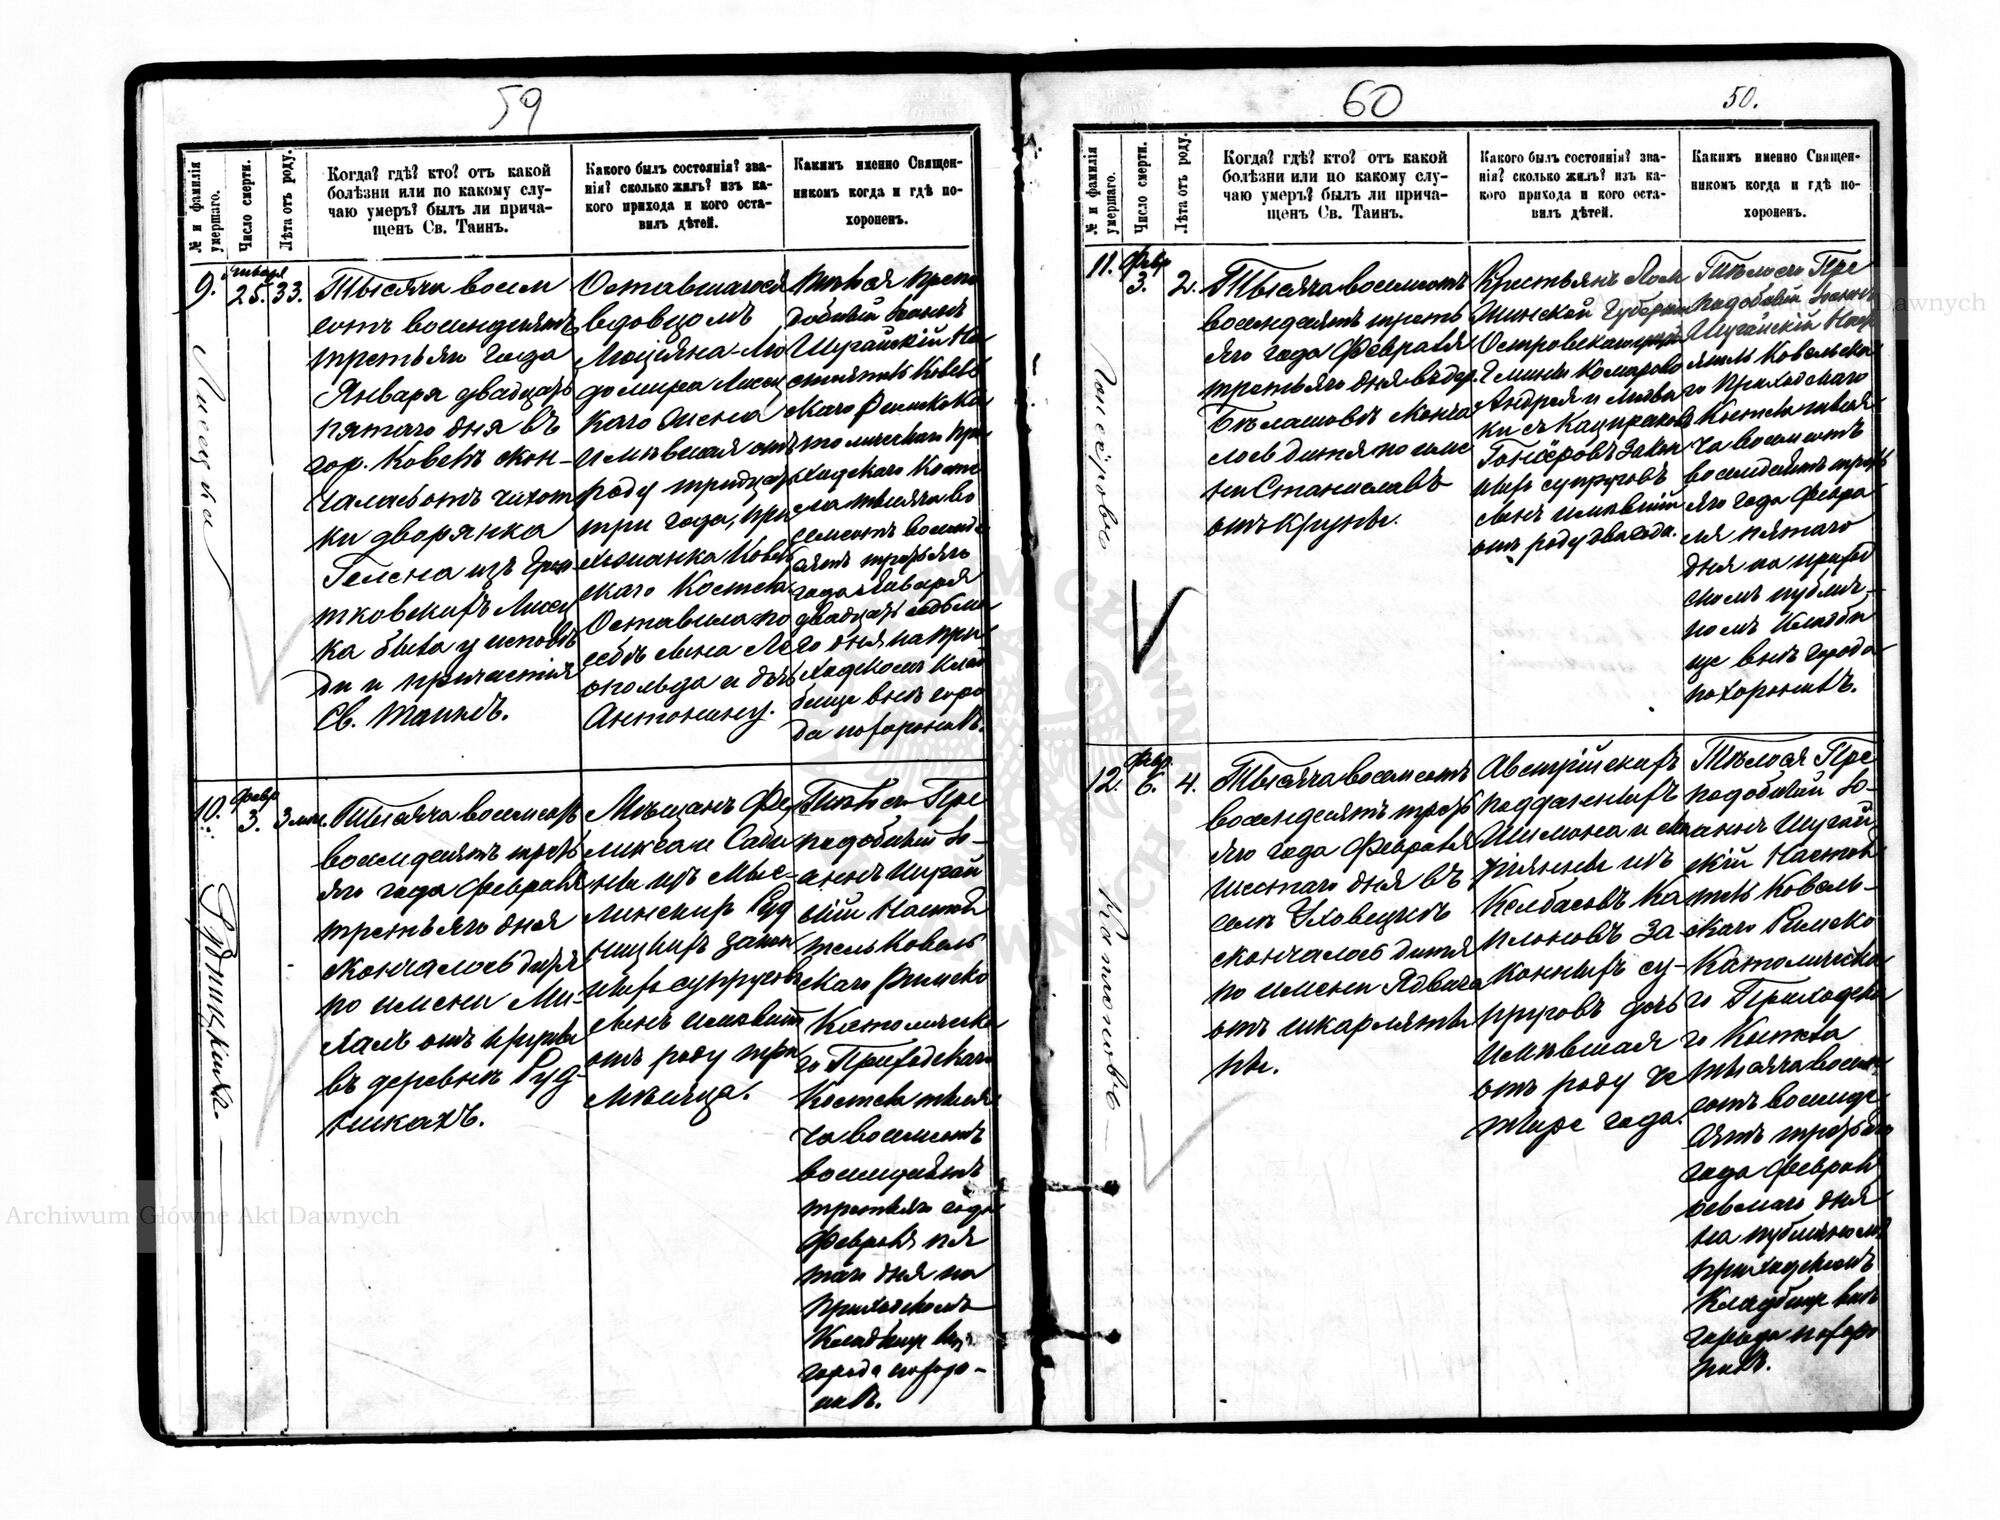 59
№ и фамилія умершаго.
Число смерти.
Лѣта отъ роду.
Когда? гдѣ? кто? отъ какой
болѣзни или по какому слу-
чаю умеръ? былъ ли прича-
щенъ Св. Таинъ.
Какого былъ состоянія? зва-
нія? сколько жилъ? изъ ка-
кого прихода и кого оста-
вилъ дѣтей.
Какимъ именно Священ-
никомъ когда и гдѣ по-
хороненъ.
9.
Января
25.
33.
Лисецка
Тысяча восем
сотъ восемдесятъ
третьяго года
Января двадцать
пятаго дня въ
гор. Ковелѣ скон-
чалась отъ чихот
ки дворянка
Гелена изъ
тковскихъ Лисец
ка была у исповѣ
ди и причастія
Св. Таинъ.
Оставшагося
вдовцомъ
Люціяна-Лю
домира Лисец
каго жена
имѣвшая отъ
роду тридцать
три года, при
хожанка Ковель
скаго Костела.
Оставила по
себѣ сына Ле
опольда и дочь
Антонину.
Тѣло ея Препо
добный Іоаннъ
Шугайскій На
стоятель Ковель
скаго Римско Ка
толическаго При
ходскаго Косте
ла тысяча во
семсотъ восемде
сятъ третьяго
года Января
двадцать седьма
го дня на при
ходскомъ Клад
бище внѣ горо
да похоронилъ.
10.
Февр
3.
3 мѣс.
Рудницкій
Тысяча восемсотъ
восемдесятъ треть
яго года Февраля
третьяго дня
скончалось дитя
по имени Ми-
халъ отъ крупы
въ деревнѣ Руд-
никахъ.
Мѣщанъ Фе
ликса и Саби
ны изъ Мыс-
линскихъ Руд
ницкихъ закон
ныхъ супруговъ
сынъ имѣвшій
отъ роду три
мѣсяца.
Тѣло Пре
подобный Іо-
аннъ Шугай
скій Настоя
тель Ковель
скаго Римско
Католическа
го Приходскаго
Костела тыся
ча восемсотъ
восемдесятъ
третьяго года
Февраля пя
таго дня на
приходскомъ
Кладбище внѣ
города похоро-
нилъ.
60
50.
№ и фамилія умершаго.
Число смерти.
Лѣта отъ роду.
Когда? гдѣ? кто? отъ какой
болѣзни или по какому слу-
чаю умеръ? былъ ли прича-
щенъ Св. Таинъ.
Какого былъ состоянія? зва-
нія? сколько жилъ? изъ ка-
кого прихода и кого оста-
вилъ дѣтей.
Какимъ именно Священ-
никомъ когда и гдѣ по-
хороненъ.
11.
Февр
3.
2.
Тысяча восемсотъ
восемдесятъ треть
яго года Февраля
третьяго дня въ дер.
Бѣлашовѣ сконча
лось дитя по име
ни Станиславъ
отъ крупы.
Крестьянъ Лом
жинской Губерніи
Островскаго уѣзда
Гмины Комарово
Андрея и
ки съ Кацпраковъ
Гонсёровъ закон
ныхъ супруговъ
сынъ имѣвшій
отъ роду два года.
Тѣло его Пре
подобный Іоаннъ
Шугайскій Наст
ятель Ковельска
го Приходскаго
Костела тыся
ча восемсотъ
восемдесятъ треть
яго года Февра
ля пятаго
дня на приход
скомъ публич-
номъ Кладби
ще внѣ города
похоронилъ.
12.
Февр.
6.
4.
Каплоновъ
Тысяча восемсотъ
восемдесятъ треть
яго года Февраля
шестаго дня въ
селѣ Уховецкѣ
скончалось дитя
по имени Ядвига
отъ шкарляти
ны.
Австрійскихъ
подданныхъ
Шимона и Ма
ріянны изъ
Колбасовъ Ка
плоновъ За-
конныхъ су-
пруговъ дочь
имѣвшая
отъ роду че
тыре года.
Тѣло ея Пре
подобный Іо-
аннъ Шугай
скій Настоя
тель Ковель-
скаго Римско
Католическа
го Приходска
го Костела
тысяча восем-
сотъ восемде-
сятъ третьяго
года Февраля
осьмаго дня
на публичномъ
приходскомъ
Кладбище внѣ
города похоро
нилъ.
Archiwum Główne Akt Dawnych
Archiwum Główne Akt Dawnych